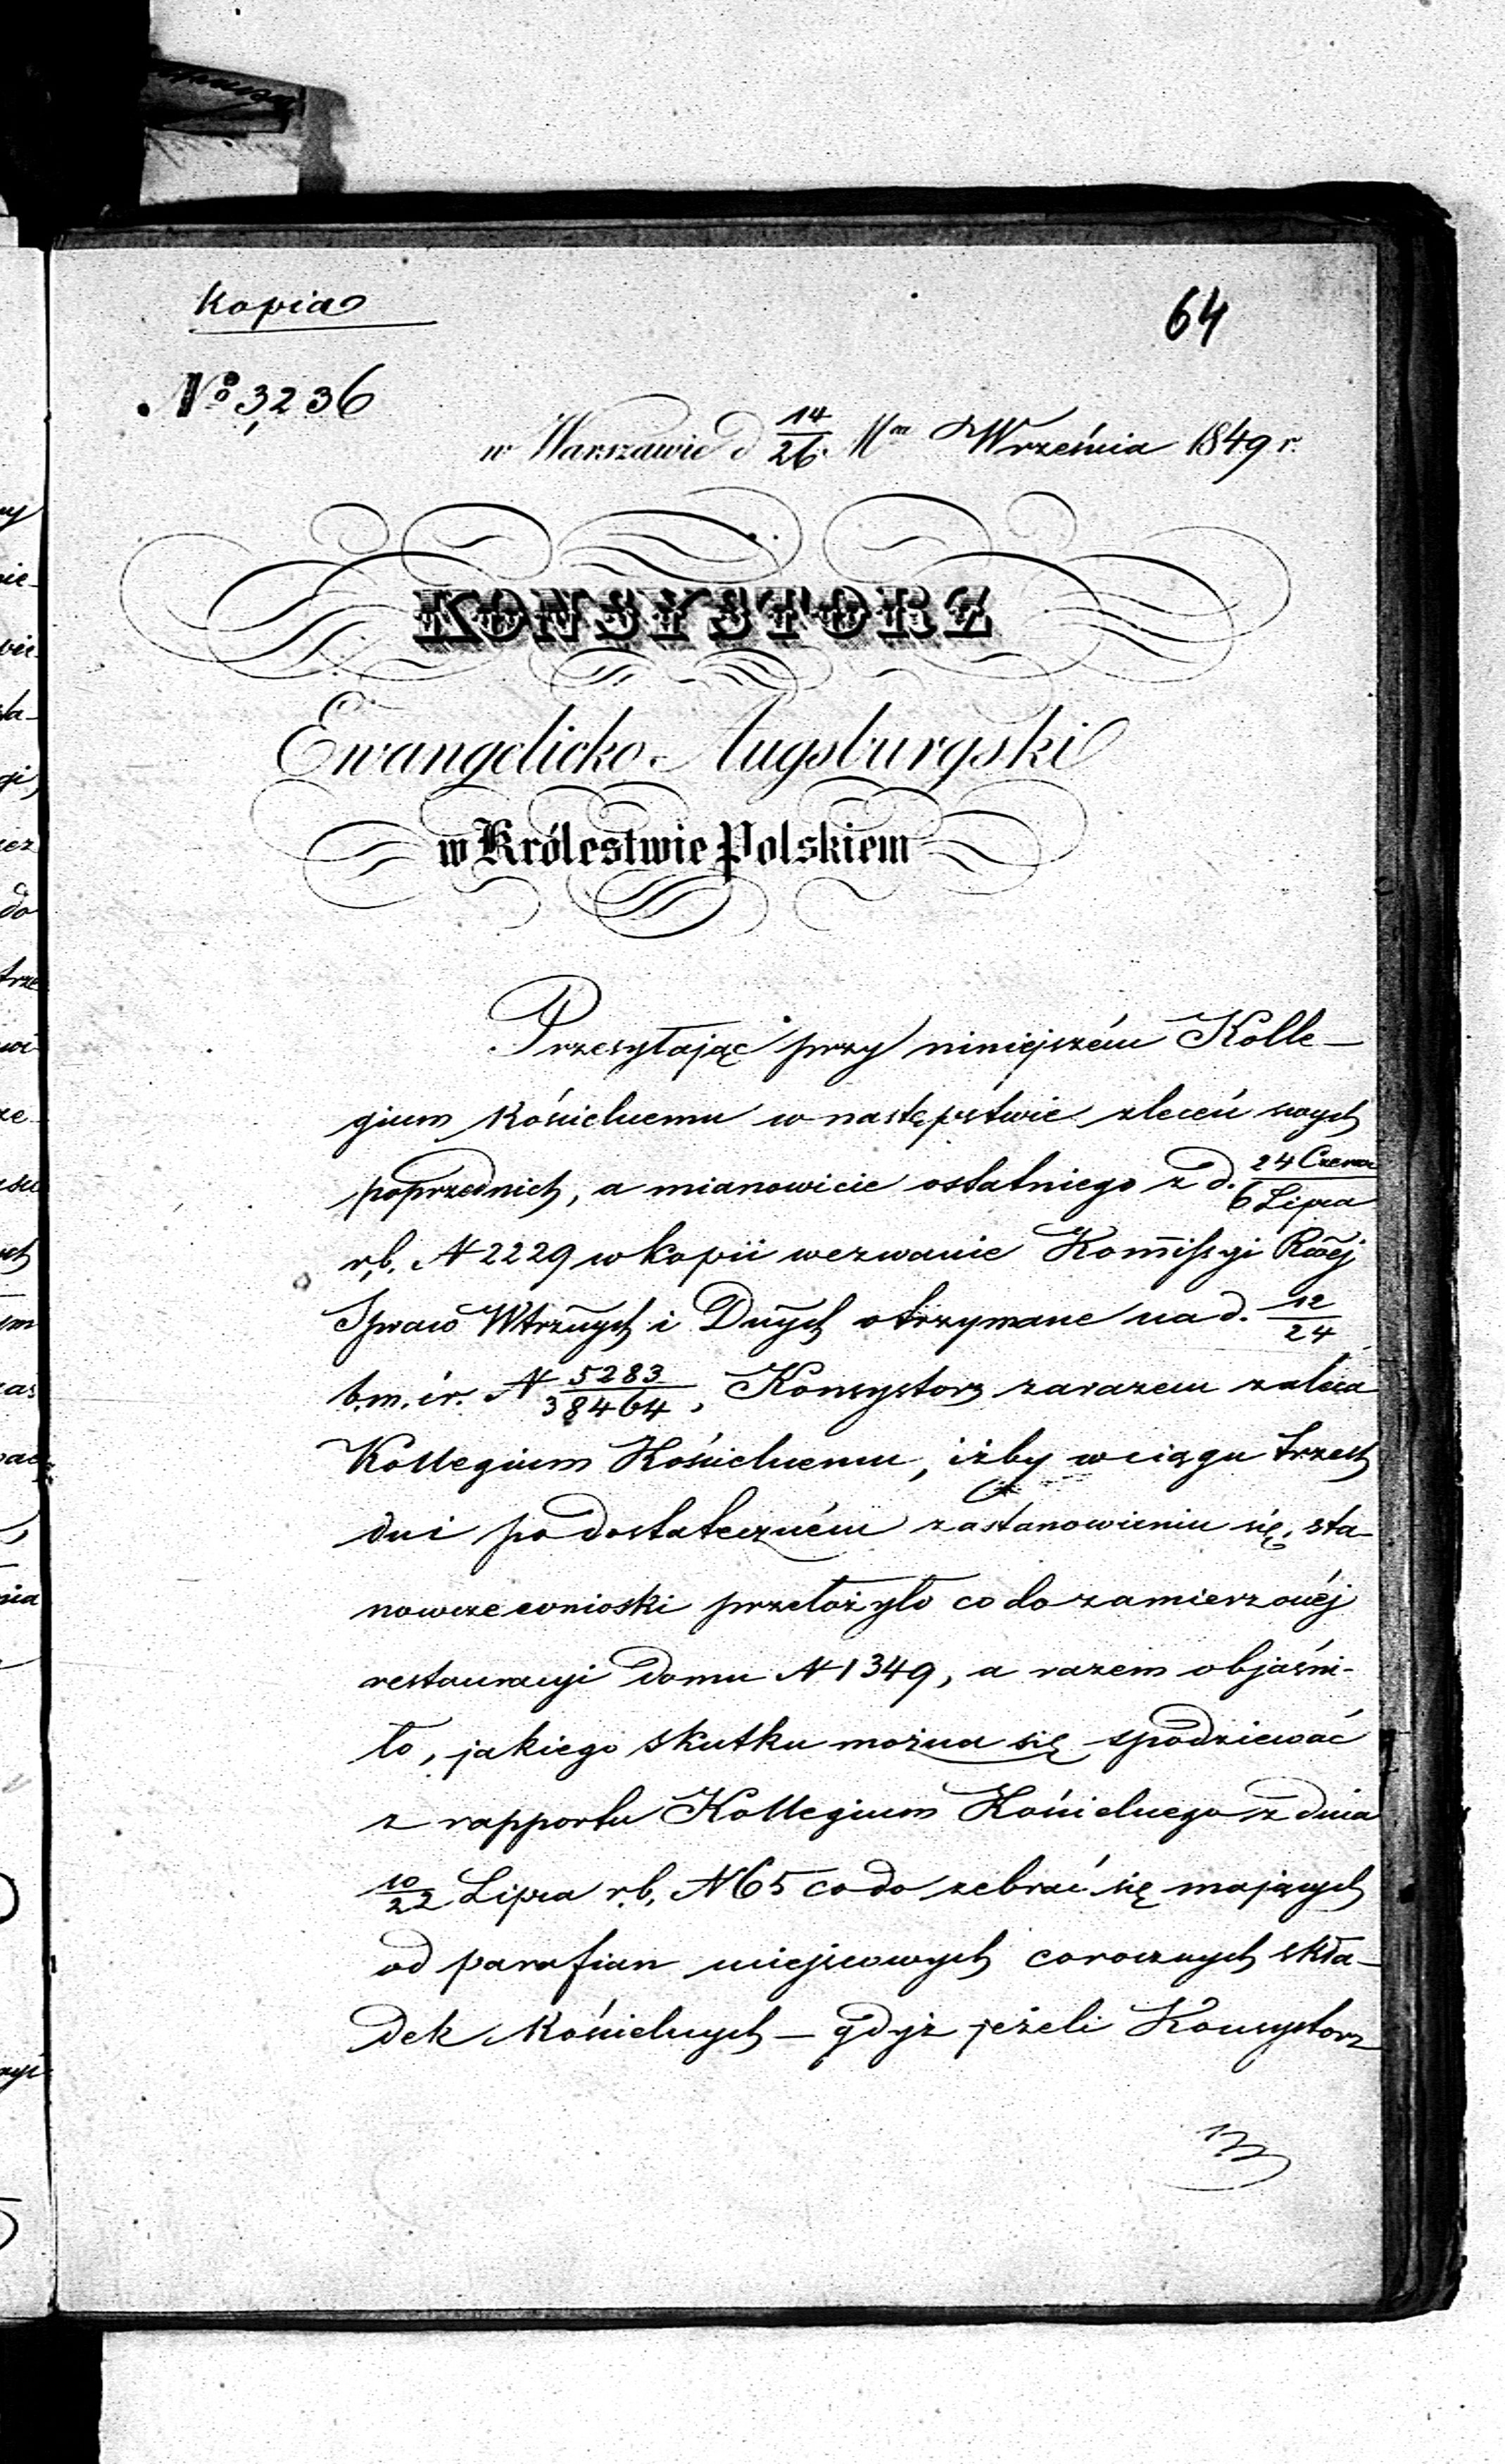 Kopia
64
№ 3236
w Warszawie d 14/26 Mca Września 1849 r.
KONSYSTORZ
Ewangelicko-Augsburgski
w Królestwie Polskiem
Przesyłając przy niniejszém Kolle-
gium Kościelnemu w następstwie zleceń swych
poprzednich, a mianowicie ostatniego z d. 24 Czerwca/6 Lipca
r.b. N 2229 w kopii wezwanie Kommissyi Rwéj
Spraw Wtrznych i Dnych otrzymane na d. 12/24
b.m. i r. N 5283/38464, Konsystorz zarazem zaleca
Kollegium Kościelnemu, iżby w ciągu trzech
dni po dostateczném zastanowieniu się, sta-
nowcze wnioski przełożyło co do zamierzonéj
restauracyi domu N 1349, a razem objaśni-
ło, jakiego skutku można się spodziewać
z rapportu Kollegium Kościelnego z dnia
10/22 Lipca r.b. N 65 co do zebrać się mających
od parafian miejscowych corocznych skła-
dek Kościelnych – gdyż jeżeli Konsystorz